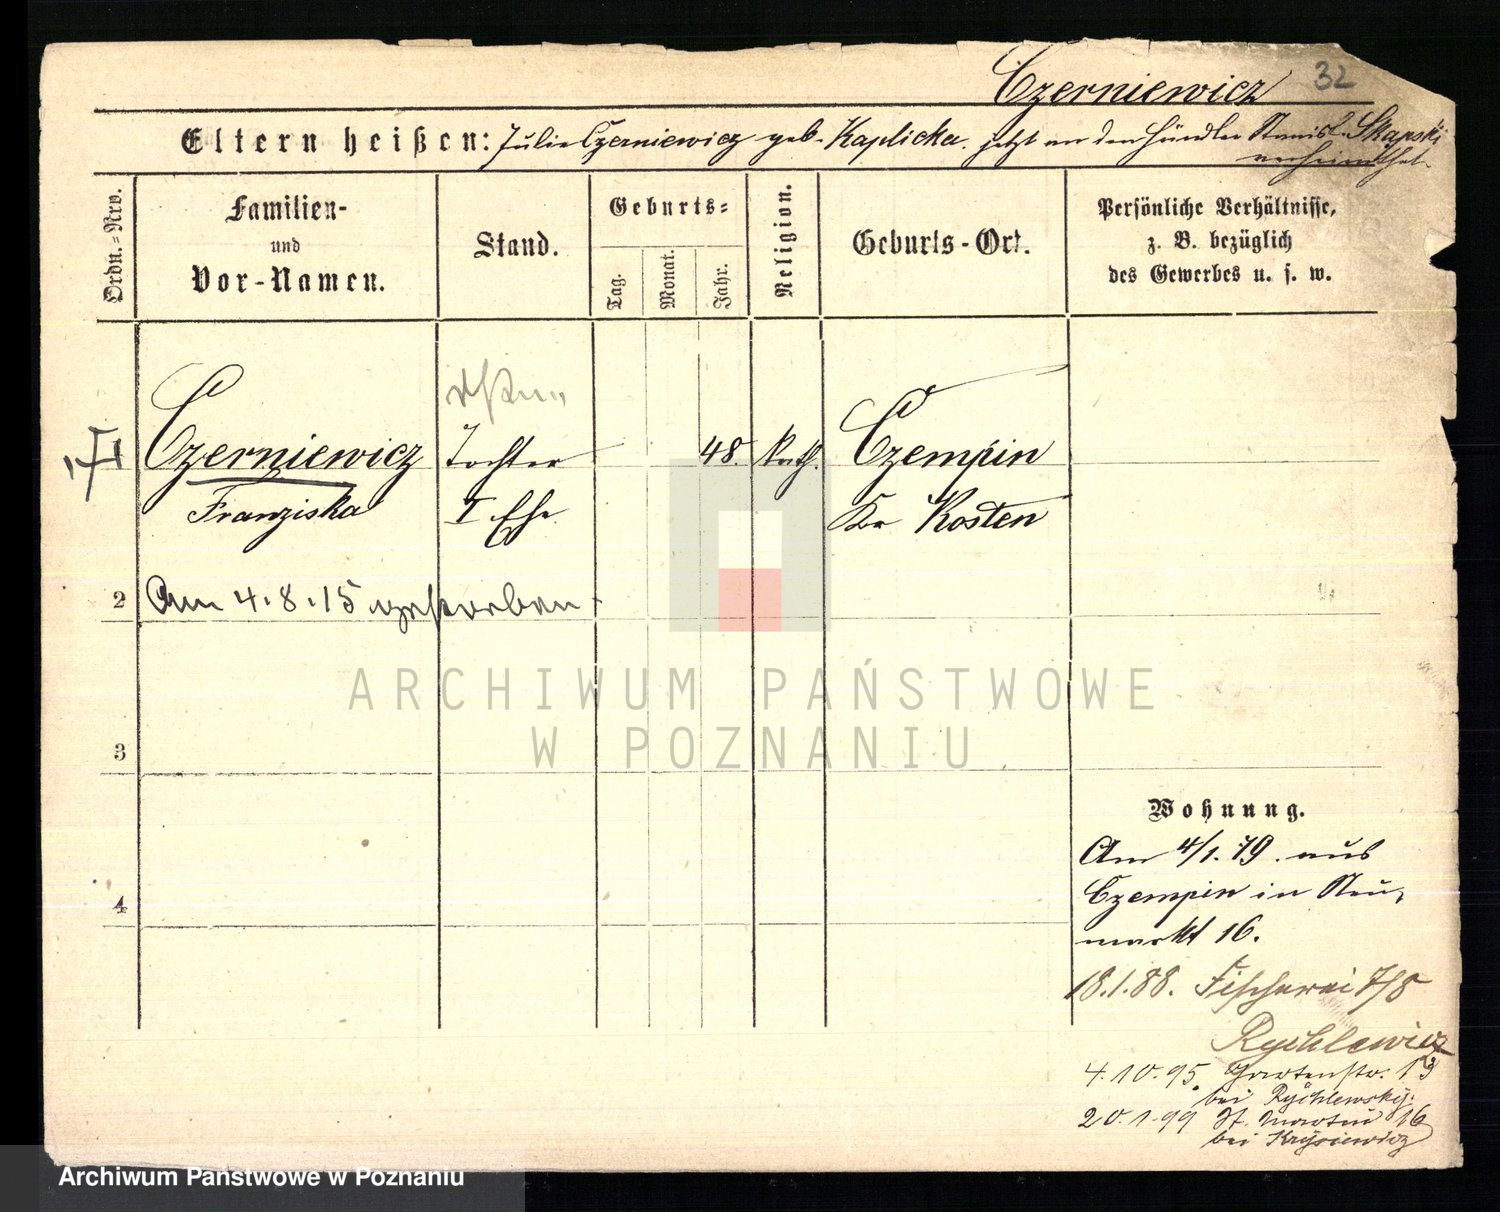 Czerniewicz 32
Eltern heißen: Julie Czerniewicz geb. Kaplicka. jetzt an den Händler Stanisl. Skapski
verheirathet
Ordn.-Nro.
Familien-
und
Vor-Namen.
Stand.
Geburts-
Tag.
Monat.
Jahr.
Religion.
Geburts-Ort.
Persönliche Verhältnisse,
z. B. bezüglich
des Gewerbes u. s. w.
Czerniewicz Tochter 48. kath. Czempin
Franziska I Ehe Kr Kosten
2 Am 4.8.15 gestorben
3
4
Wohnung.
Am 4/1.79. aus
Czempin in Neu-
markt 16.
18.1.88. Fischerei 7/8
Rychlewicz
4.10.95. Gartenstr. 13
bei Rychlewsky.
20.1.99 St. Martin 16
bei Krysiewicz
ARCHIWUM PAŃSTWOWE
W POZNANIU
Archiwum Państwowe w Poznaniu